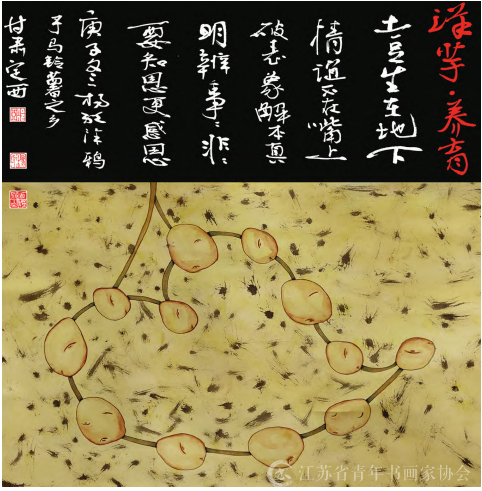 洋芋·养育
土豆生在地下
情谊不在嘴上
破表象解本真
明辨事々非々
要知恩更感恩
庚子冬杨涂鸦
于马铃薯之乡
甘肃定西
江苏省青年书画家协会